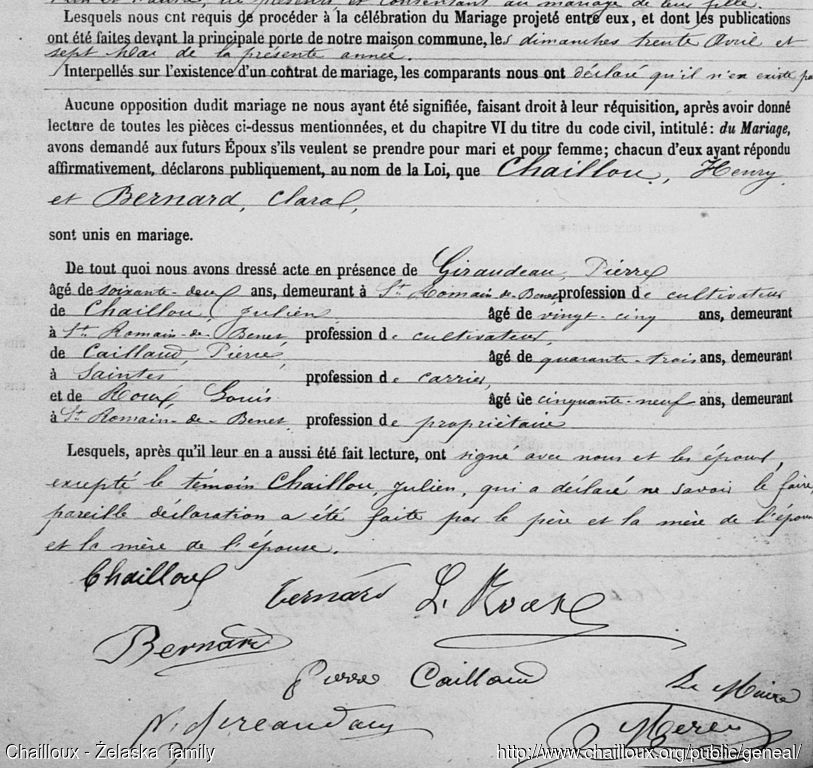 et consentant au mariage de leur fille.
Lesquels nous ont requis de procéder à la célébration du Mariage projeté entre eux, et dont les publications
ont été faites devant la principale porte de notre maison commune, les dimanches trente Avril et
sept Mai de la présente année.
Interpellés sur l'existence d'un contrat de mariage, les comparants nous ont déclaré qu'il n'en existe pas
Aucune opposition dudit mariage ne nous ayant été signifiée, faisant droit à leur réquisition, après avoir donné
lecture de toutes les pièces ci-dessus mentionnées, et du chapitre VI du titre du code civil, intitulé : du Mariage,
avons demandé aux futurs Époux s'ils veulent se prendre pour mari et pour femme ; chacun d'eux ayant répondu
affirmativement, déclarons publiquement, au nom de la Loi, que Chailloux, Henry,
et Bernard, Clara,
sont unis en mariage.
De tout quoi nous avons dressé acte en présence de Giraudeau, Pierre
âgé de soixante-deux ans, demeurant à St Romain-de-Benet profession de cultivateur
de Chailloux, Julien, âgé de vingt-cinq ans, demeurant
à St Romain-de-Benet, profession de cultivateur,
de Caillaud, Pierre, âgé de quarante-trois ans, demeurant
à Saintes profession de carrier,
et de Roux, Louis âgé de cinquante-neuf ans, demeurant
à St Romain-de-Benet, profession de propriétaire
Lesquels, après qu'il leur en a aussi été fait lecture, ont signé avec nous et les époux,
excepté le témoin Chailloux, Julien, qui a déclaré ne savoir le faire,
pareille déclaration a été faite par le père et la mère de l'époux
et la mère de l'épouse.
Chailloux Bernard L. Roux
Bernard
Pierre Caillaud Le Maire
Chailloux - Želaska family http://www.chailloux.org/public/geneal/